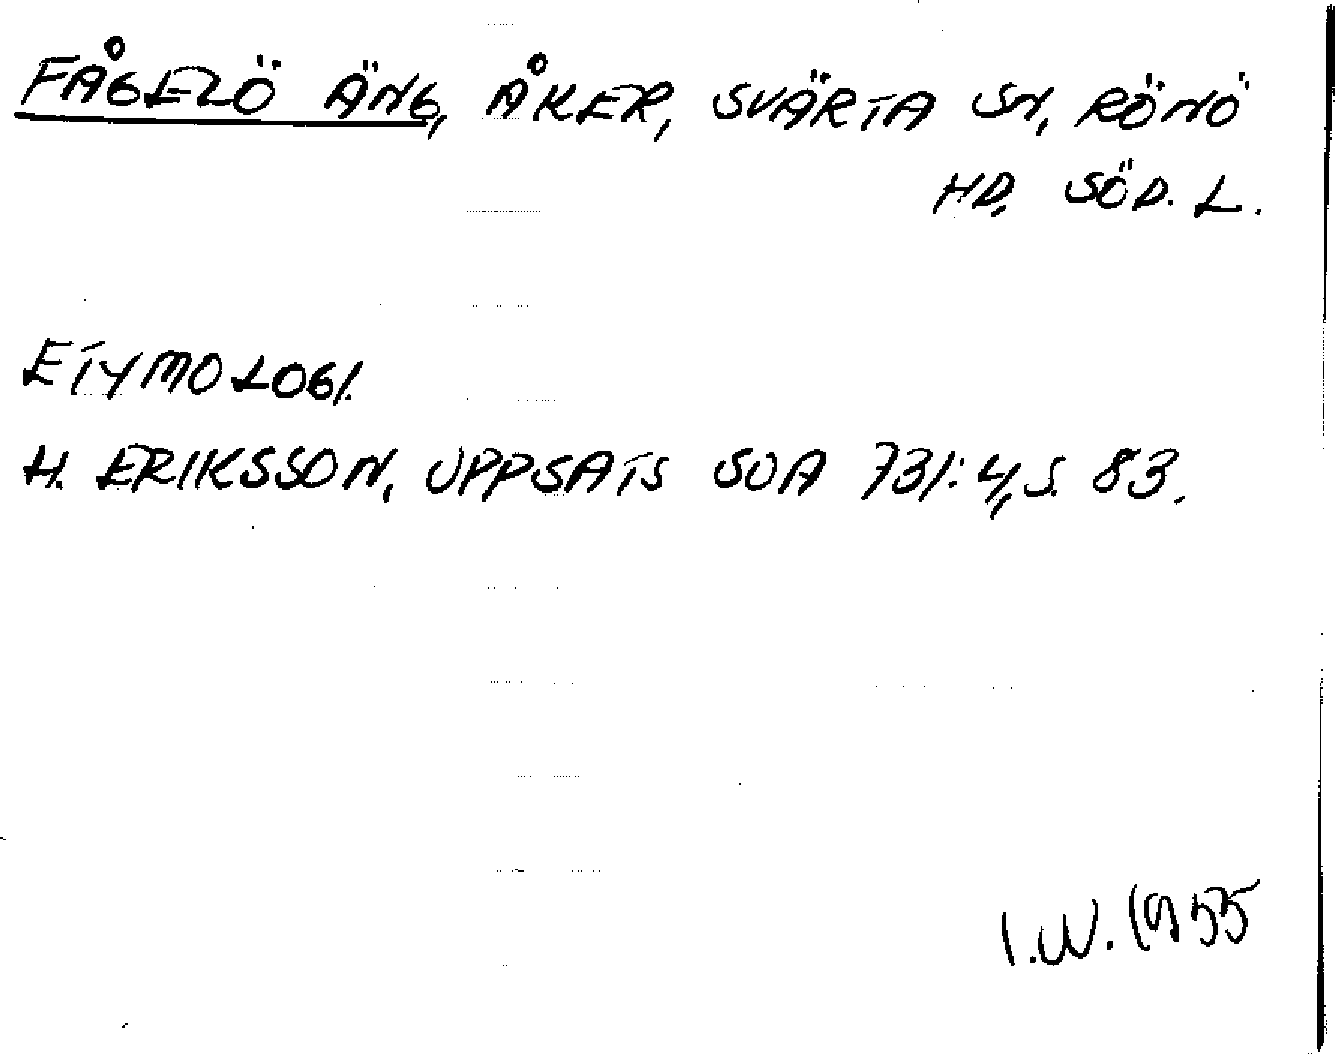 FÅGELÖ ÄNG, ÅKER, SVÄRTA SN, RÖNÖ
HD, SÖD. L.
ETYMOLOGI.
H. ERIKSSON, UPPSATS SOA 731:4, S. 83.
I.W. 1955